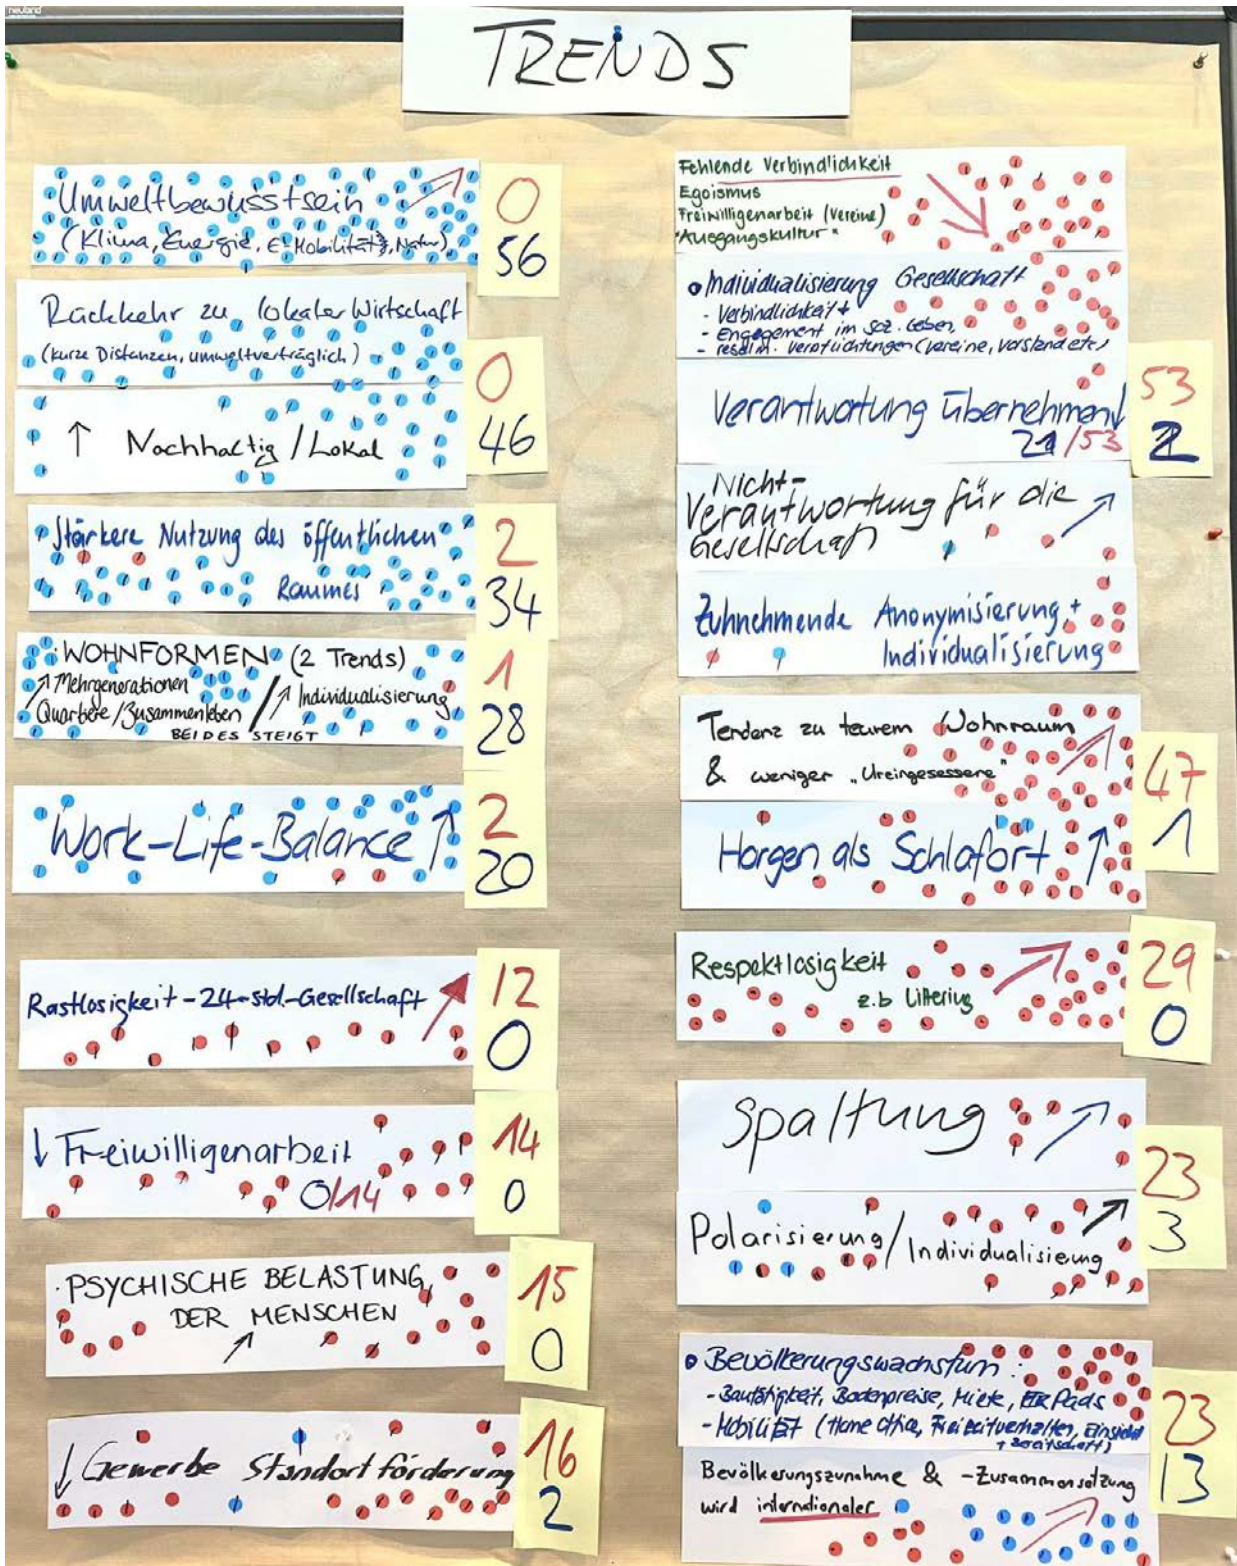 neuland
TRENDS
Umweltbewusstsein
(Klima, Energie, E-Mobilität, Natur)
0
56
Rückkehr zu lokaler Wirtschaft
(kurze Distanzen, umweltverträglich)
↑ Nachhaltig / Lokal
0
46
Stärkere Nutzung des öffentlichen
Raumes
2
34
WOHNFORMEN (2 Trends)
↗ Mehrgenerationen
Quartiere/Zusammenleben / ↗ Individualisierung
BEIDES STEIGT
1
28
Work-Life-Balance ↑
2
20
Rastlosigkeit - 24-std.-Gesellschaft
12
0
↓ Freiwilligenarbeit
0/14
14
0
PSYCHISCHE BELASTUNG
DER MENSCHEN
↗
15
0
↓ Gewerbe Standortförderung
16
2
Fehlende Verbindlichkeit
Egoismus
Freiwilligenarbeit (Vereine)
"Ausgangskultur"
• Individualisierung Gesellschaft
- Verbindlichkeit ↓
- Engagement im soz. Leben,
Verpflichtungen (Vereine, Vorstand etc)
Verantwortung übernehmen ↓
21/53
53
2
Nicht-
Verantwortung für die
Gesellschaft
Zuhnehmende Anonymisierung +
Individualisierung
Tendenz zu teurem Wohnraum
& weniger "Ureingesessene"
Horgen als Schlafort ↑
47
1
Respektlosigkeit
z.b Littering
29
0
Spaltung
Polarisierung/Individualisierung
23
3
• Bevölkerungswachstum:
- Bautätigkeit, Bodenpreise, Miete,
- Mobilität (Home Office, Freizeitverhalten,
Bevölkerungszunahme & -Zusammensetzung
wird internationaler
23
13